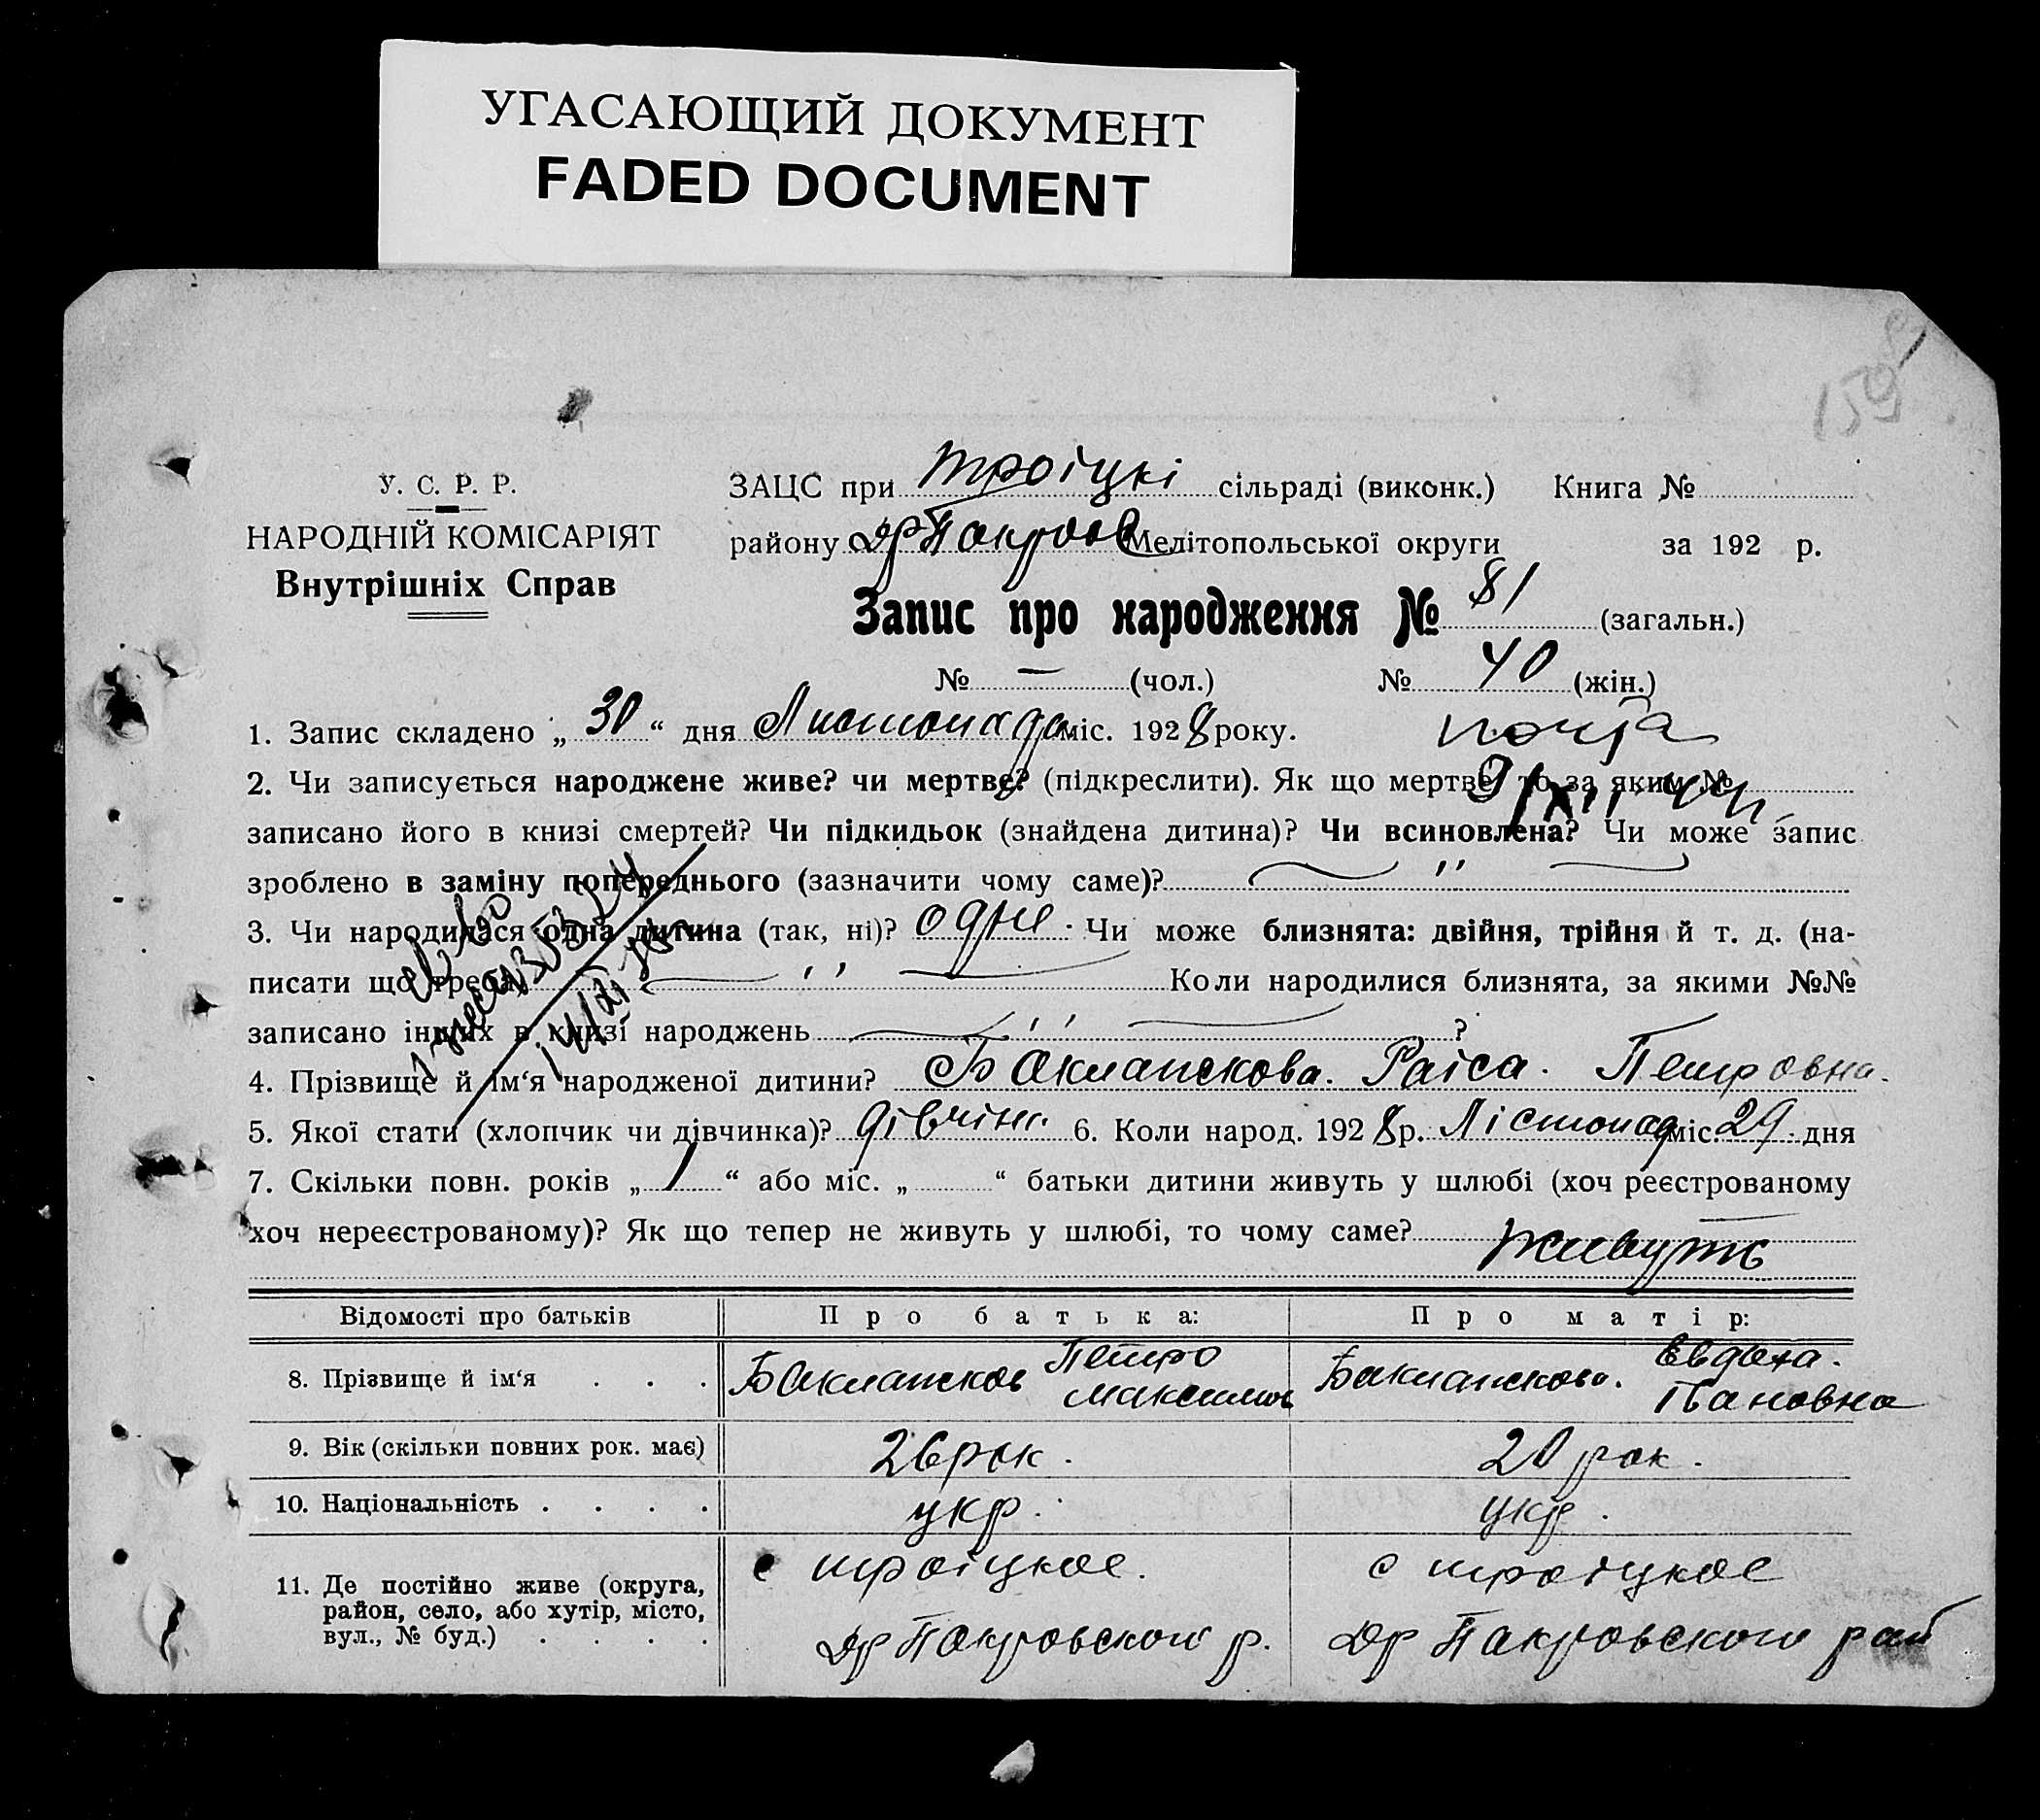 УГАСАЮЩИЙ ДОКУМЕНТ
FADED DOCUMENT
159
У. С. Р. Р.
НАРОДНІЙ КОМІСАРІЯТ
Внутрішніх Справ
ЗАЦС при Троіцкі сільраді (виконк.) Книга №
району др Покров Мелітопольської округи за 192 р.
Запис про народження № 81 (загальн.)
№ — (чол.) № 40 (жін.)
1. Запис складено „ 30 “ дня Листопада міс. 1928 року.
2. Чи записується народжене живе? чи мертве? (підкреслити). Як що мертве, то за яким №
записано його в книзі смертей? Чи підкидьок (знайдена дитина)? Чи всиновлена? Чи може запис
зроблено в заміну попереднього (зазначити чому саме)? — " —
3. Чи народилася одна дитина (так, ні)? одне. Чи може близнята: двійня, трійня й т. д. (на-
писати що треба) — " — Коли народилися близнята, за якими №№
записано інших в книзі народжень — " — ?
4. Прізвище й ім‘я народженої дитини? Бакланскова. Раіса. Петровна.
5. Якої стати (хлопчик чи дівчинка)? дівчин. 6. Коли народ. 1928 р. Лістопад міс. 29 дня
7. Скільки повн. років „ 1 “ або міс. „ “ батьки дитини живуть у шлюбі (хоч реєстрованому
хоч нереєстрованому)? Як що тепер не живуть у шлюбі, то чому саме?
живуть
Відомості про батьків Про батька: Про матір:
8. Прізвище й ім‘я . . . Баклансков Петро Максимов Бакланскова. Евдоха. Івановна
9. Вік (скільки повних рок. має) 26 рок. 20 рок.
10. Національність . . . . укр. укр.
11. Де постійно живе (округа, с троіцкое. с троіцкое
район, село, або хутір, місто,
вул., № буд.) . . . . др Покровского р. др Покровского рай